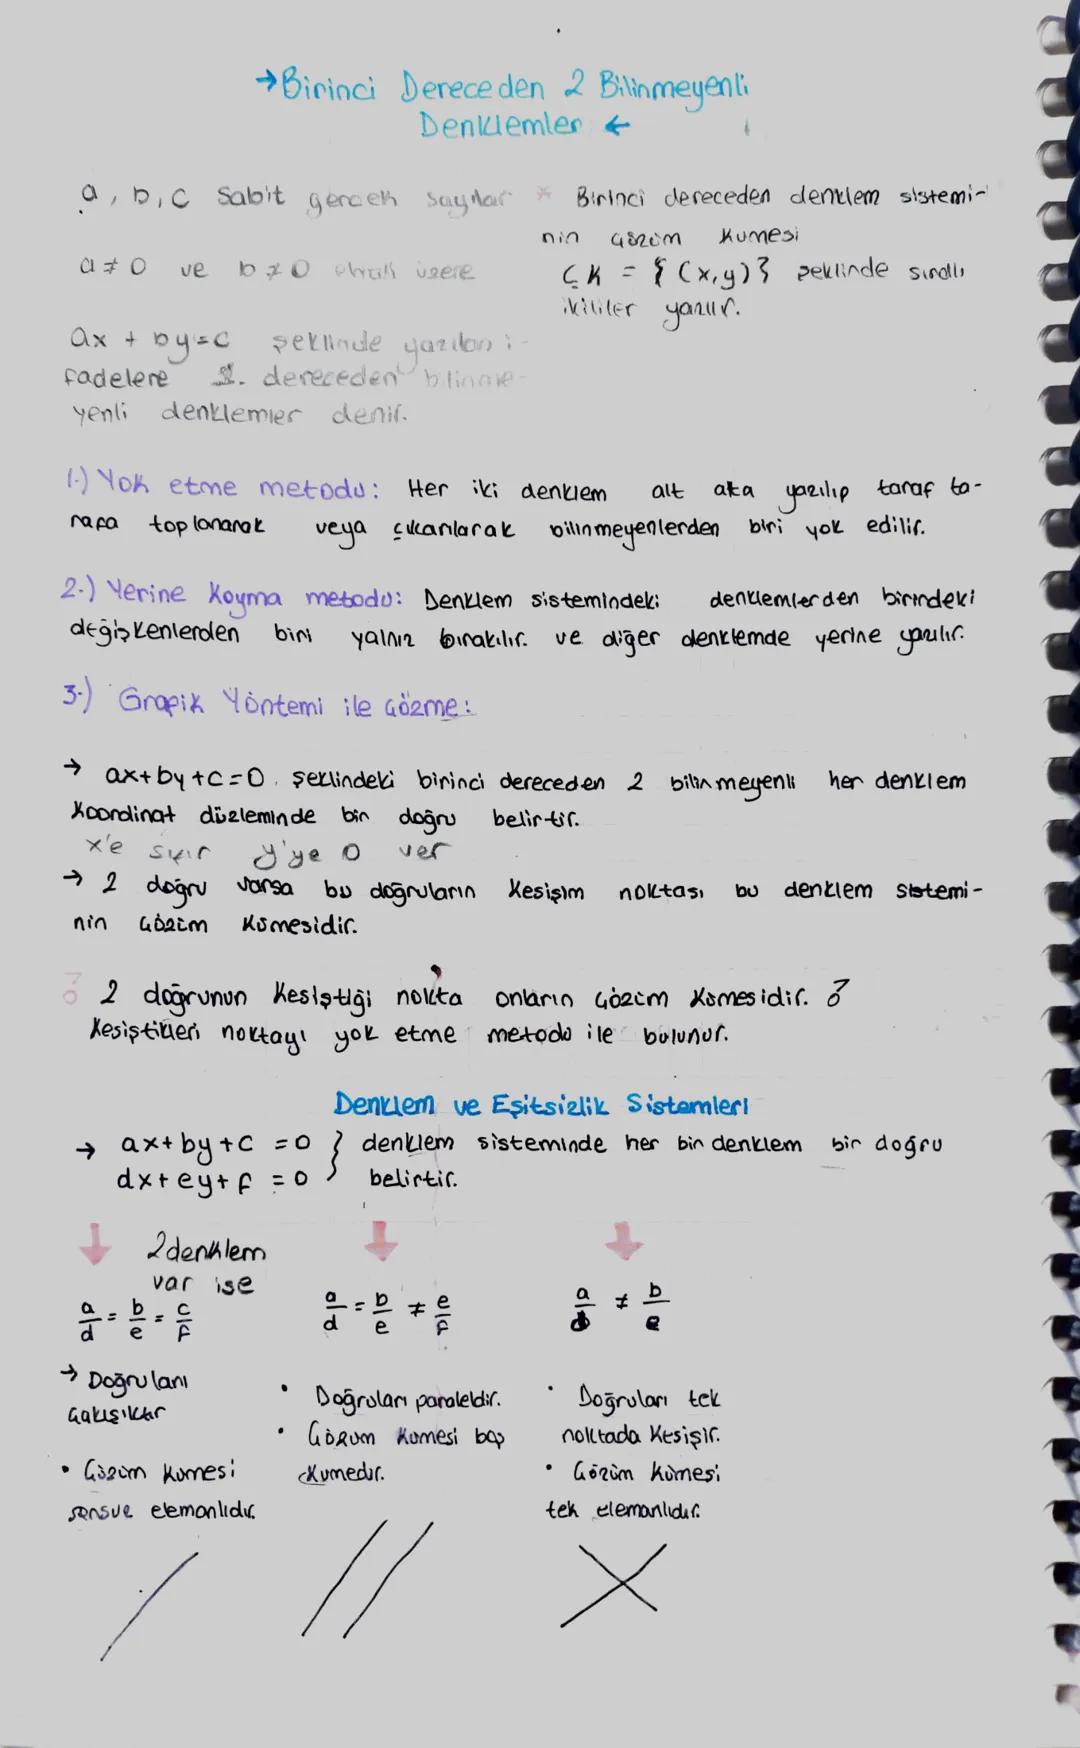 →Birinci Dereceden 2 Bilinmeyenli
Denklemler ←
a, b, c Sabit gerçek sayılar
a ≠ 0 ve b ≠ 0 olmak üzere
ax + by = c şeklinde yazılan i-
fadelere 1. dereceden bilinme-
yenli denklemler denir.
* Birinci dereceden denklem sistemi-
nin Çözüm Kümesi
ÇK = { (x,y) } şeklinde sıralı
ikililer yazılır.
1.) Yok etme metodu: Her iki denklem alt alta yazılıp taraf ta-
rafa toplanarak veya çıkarılarak bilinmeyenlerden biri yok edilir.
2.) Yerine Koyma metodu: Denklem sistemindeki denklemlerden birindeki
değişkenlerden biri yalnız bırakılır. ve diğer denklemde yerine yazılır.
3.) Grafik Yöntemi ile Çözme:
→ ax+by+c=0. şeklindeki birinci dereceden 2 bilinmeyenli her denklem
Koordinat düzleminde bir doğru belirtir.
x'e sıfır y'ye 0 ver
→ 2 doğru varsa bu doğruların kesişim noktası bu denklem sistemi-
nin Çözüm Kümesidir.
2 doğrunun Kesiştiği nokta onların Çözüm Kümesidir.
Kesiştikleri noktayı yok etme metodu ile bulunur.
Denklem ve Eşitsizlik Sistemleri
→ ax+by+c = 0 } denklem sisteminde her bir denklem bir doğru
dx+ey+f = 0 belirtir.
↓ 2 denklem
var ise
a/d = b/e = c/f
→ Doğruları
Çakışıktır
• Çözüm kümesi
sonsuz elemanlıdır.
↓
a/d = b/e ≠ e/f
• Doğruları paraleldir.
• Çözüm Kümesi boş
Kümedir.
↓
a/d ≠ b/e
• Doğruları tek
noktada Kesişir.
• Çözüm Kümesi
tek elemanlıdır.